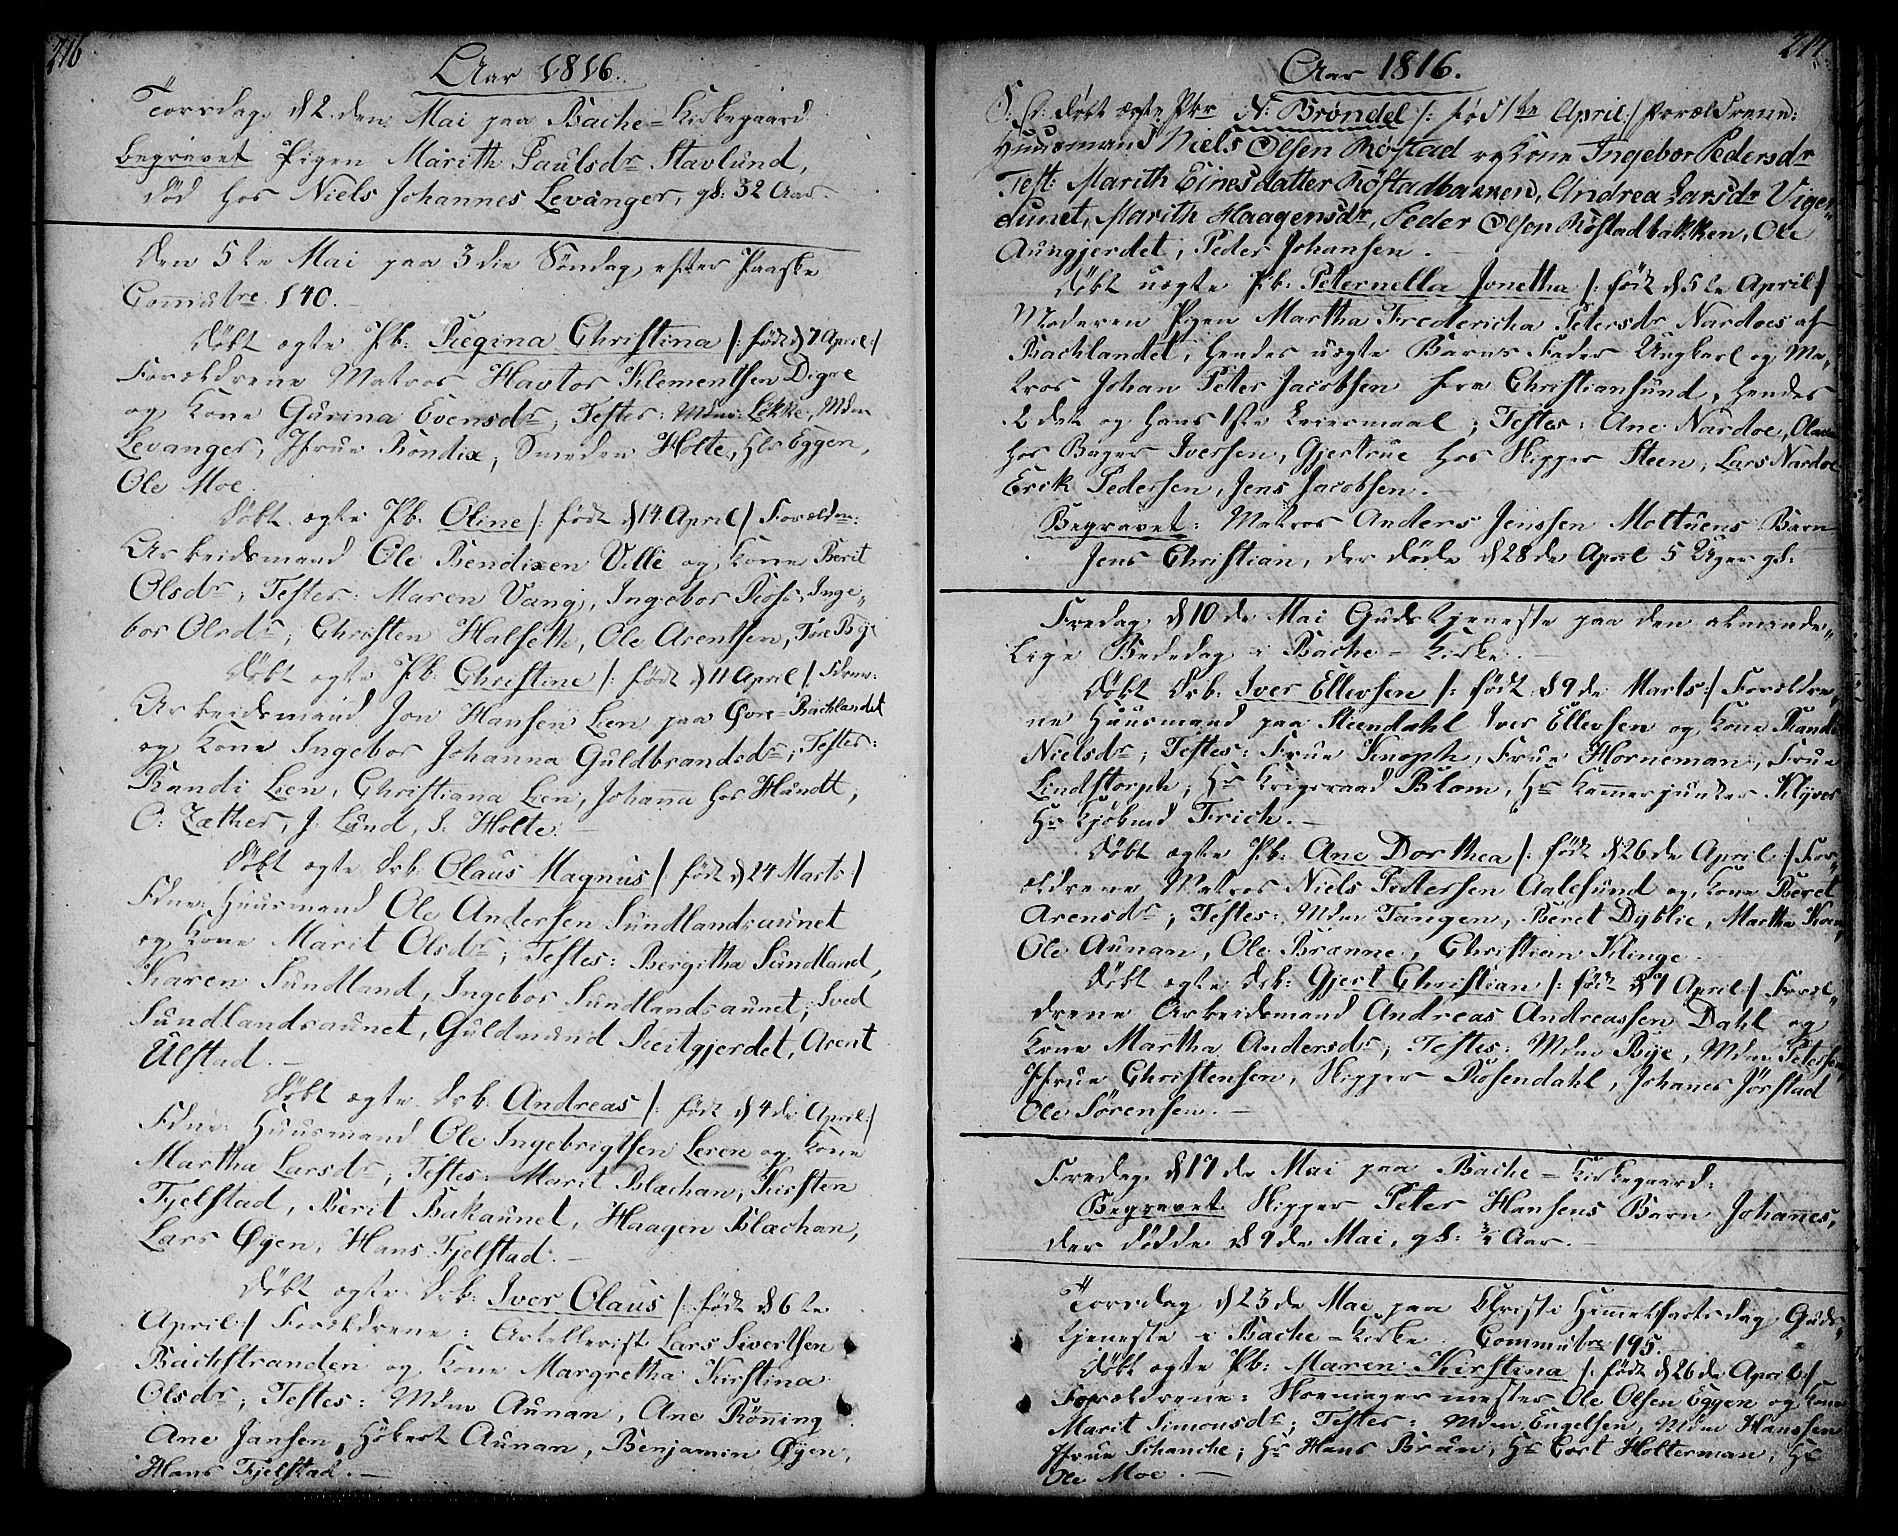 216
Aar 1816.
Torsdag d 2 den Mai paa Bache-Kirkegaard
begravet Pigen Marith Paulsdr Stavlund,
død hos Niels Johannes Levanger, gl: 32 Aar.
Den 5te Mai paa 3die Søndag efter Paaske
Commutre 140.
Døbt ægte Pb: Regina Christina /: født d 7 April :/
Forældrene Matros Havtor Klementsen Digre
og Kone Gurina Evensdr, Testes: Mdm: Løkke, Mdm
Levanger, Jfrue Bondix, Smeden Holte, Hls Eggen,
Ole Moe.
Døbt ægte Pb. Oline /: født d 14 April / Forældrne:
Arbeidsmand Ole Bendixen Ville og Kone Berit
Olsdr, Testes: Maren Vang, Ingebor Rose, Inge„
bor Olsdr; Christen Halseth, Ole Arentsen, Tue Bye
Døbt ægte Pb: Christine /: født d 11 April / Fdrene:
Arbeidsmand Jon Hansen Lien paa Øvre-Backlandet
og Kone Ingebor Johanna Guldbrandsdr; Testes:
Randi Lien, Christiana Lien, Johanna hos Hundt,
O: Zæther, J. Lund, J: Holte.
Døbt ægte Drb: Olaus Magnus / født d 24 Marts /
Fdne: Huusmand Ole Andersen Sundlandsaunet
og Kone Marit Olsdr; Testes: Bergitha Sundland,
Karen Sundland, Ingebor Sundlandsaunet; Sved
Sundlandsaunet, Guldmund Reitgjerdet, Arent
Ulstad.
Døbt ægte Drb. Andreas /: født d 4de April :/
Fdne: Huusmand Ole Ingebrigtsen Leren og Kone
Martha Larsdr; Testes: Marit Blæchan, Kirsten
Fjelstad, Berit Bakaunet, Haagen Blæchan,
Lars Øyen, Hans Fjelstad.
Døbt ægte Drb: Iver Olaus /: født d 6te
April :/ Forældrene: Artellerist Lars Sivertsen
Backstranden og Kone Margretha Kirstina
Olsdr; Testes: Mdm Aunan, Ane Rönning
Ane Jansen, Høkert Aunan, Benjamin Øyen,
Hans Fjelstad.
217
Aar 1816.
Døbt ægte Pbr N: Brøndel /: fød 1te April :/ Forældrene:
Huusmand Niels Olsen Röstad og Kone Ingebor Pedersdr
Test: Marith Einersdatter Röstadbakken, Andrea Larsdr Viger
dunet, Marith Haagensdr, Peder Olsen Röstadbakken, Ole
Aungjerdet, Peder Johansen.
Døbt uægte Pb: Peternella Jonetha /: født d 5te April /
Moderen Pigen Martha Fredericha Petersdr Nardoes af
Backlandet, hendes uægte Barns Fader Ungkarl og Ma-
tros Johan Peter Jacobsen fra Christiansund, hendes
2det og hans 1ste Leiermaal; Testes: Ane Nardoe, Olava
hos Bager Iversen, Gjertrue hos Skipper Steen, Lars Nardoe
Erik Pedersen, Jens Jacobsen.
Begravet: Matros Anders Jenssen Moltuens Barn
Jens Christian, der døde d 28de April 5 Uger gl:
Fredag d 10de Mai Gudstjeneste paa den alminde„
lige Bededag i Bache-Kirke.
Døbt Drb: Iver Ellevsen /: født d 9de Marts :/ Forældre„
ne Huusmand paa Steendahl Iver Ellevsen og Kone Randi
Nielsdr; Testes: Frue Knoph, Frue Horneman, Frue
Lindstorph, Hr Krigsraad Blom, Hr Kammerjunker Klÿver
Hr Kjöbmd Frich.
Døbt ægte Pb: Ane Dorthea /: født d 26de April :/ For„
ældrene Matros Niels Pedersen Aalesund og Kone Beret
Arensdr; Testes: Mdm Tangen, Beret Dyblie, Martha Kran,
Ole Aunan, Ole Brønne, Christian Klinge.
Døbt ægte Drb: Gjert Christian /: født d 7 April :/ Foræl„
drene Arbeidsmand Andreas Andreassen Dahl og
Kone Martha Andersdr; Testes: Mdm Bye, Mdm Petersen,
Jfrue Christensen, Skipper Rosendahl, Johanes Jörstad
Ole Sörensen.
Fredag d 17de Mai paa Bache-Kirkegaard:
Begravet Skipper Peter Hansens Barn Johannes,
der dödde d 9de Mai, gl: 3/4 Aar.
Torsdag d 23de Mai paa Christi Himmelfartsdag Guds„
tjeneste i Bache-Kirke. Commutre 195.
Døbt ægte Pb: Maren Kirstina /: født d 26de April :/
Forældrene: Skoemagermester Ole Olsen Eggen og Kone
Marit Simonsdr; Testes: Mdm Engelsen, Mdm Hanssen
Jfrue Schanche; Hr Hans Brun, Hr Cort Holterman, Hr
Ole Moe.